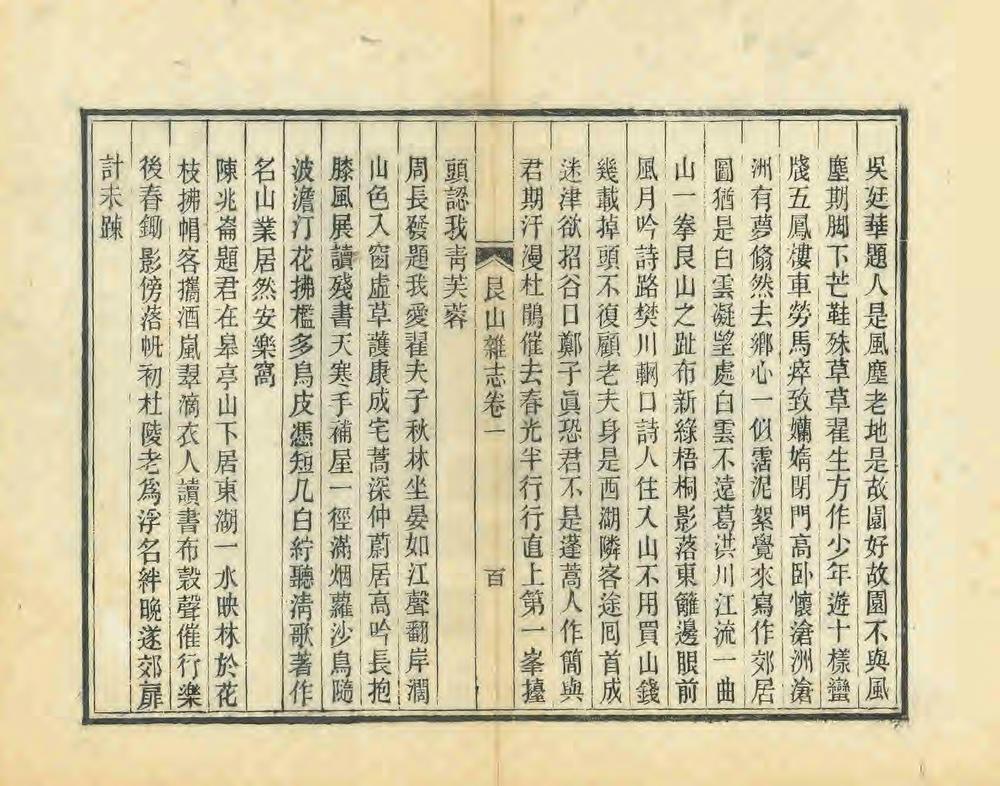 吳廷華題人是風塵老地是故園好故園不與風
塵期脚下芒鞋殊草草翟生方作少年遊十樣蠻
牋五鳳樓車勞馬瘁致孏媠閉門高卧懷滄洲滄
洲有夢翛然去鄉心一似霑泥絮覺來寫作郊居
圖猶是白雲凝望處白雲不遠葛洪川江流一曲
山一拳艮山之趾布新綠梧桐影落東籬邊眼前
風月吟詩路樊川輞口詩人住入山不用買山錢
幾載掉頭不復顧老夫身是西湖隣客途囘首成
迷津欲招谷口鄭子眞恐君不是蓬蒿人作簡與
君期汗漫杜鵑催去春光半行行直上第一峯擡
頭認我靑芙蓉
艮山雜志卷一
百
周長發題我愛翟夫子秋林坐晏如江聲翻岸濶
山色入窗虛草護康成宅蒿深仲蔚居高吟長抱
膝風展讀殘書天寒手補屋一徑滿烟蘿沙鳥隨
波澹汀花拂檻多烏皮憑短几白紵聽淸歌著作
名山業居然安樂窩
陳兆崙題君在皋亭山下居東湖一水映林於花
枝拂帽客攜酒嵐翠滴衣人讀書布穀聲催行樂
後春鋤影傍落帆初杜陵老爲浮名絆晚遂郊扉
計未踈